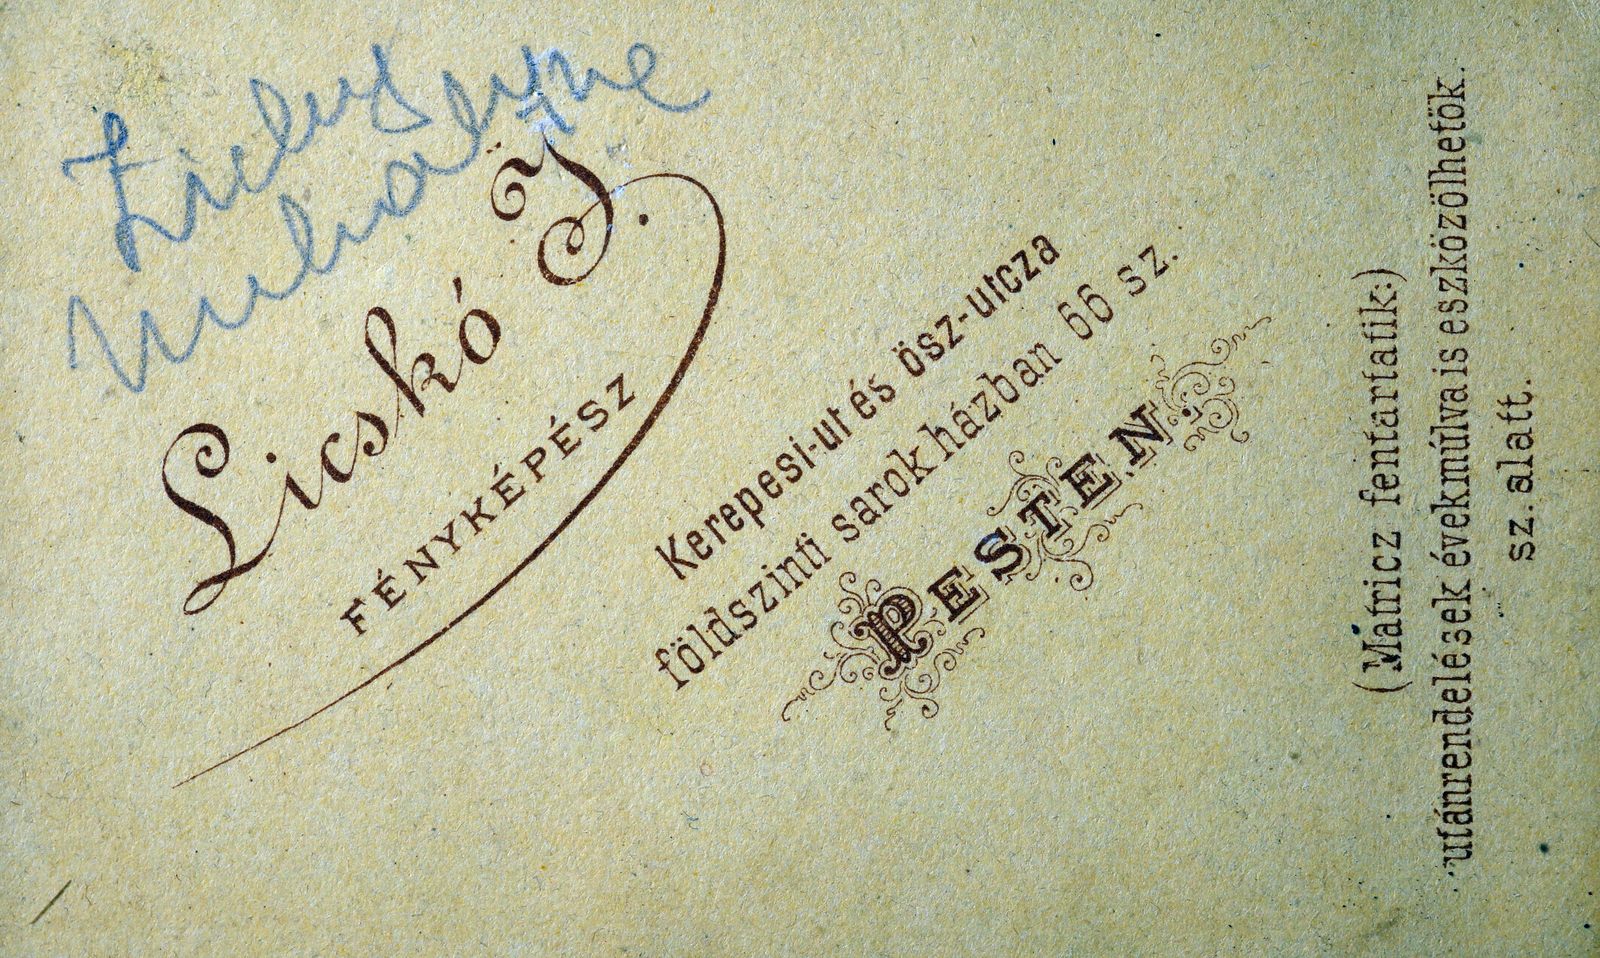 Zichy
Mihályne
Licskó J.
FÉNYKÉPÉSZ
Kerepesi-ut és ösz-utcza
földszinti sarok házban 66 sz.
PESTEN.
(Mátricz fentartatik:)
utánrendelések évekmúlva is eszközölhetök.
sz. alatt.